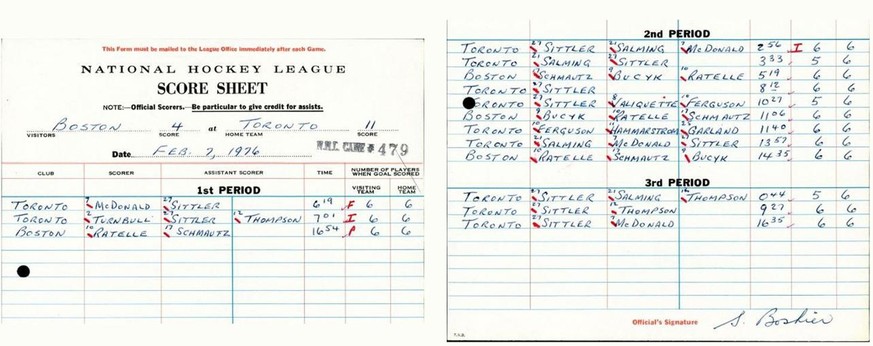 This Form must be mailed to the League Office immediately after each Game.
NATIONAL HOCKEY LEAGUE
SCORE SHEET
NOTE:—Official Scorers. Be particular to give credit for assists.
BOSTON 4 at TORONTO 11
VISITORS SCORE HOME TEAM SCORE
Date FEB. 7, 1976 N.H.L. GAME # 479
CLUB SCORER ASSISTANT SCORER TIME NUMBER OF PLAYERS WHEN GOAL SCORED
VISITING TEAM HOME TEAM
1st PERIOD
TORONTO 7 McDONALD 27 SITTLER 6 19 F 6 6
TORONTO 2 TURNBULL 27 SITTLER 12 THOMPSON 7 01 I 6 6
BOSTON 10 RATELLE 17 SCHMAUTZ 16 54 P 6 6
2nd PERIOD
TORONTO 27 SITTLER 21 SALMING 7 McDONALD 2 56 I 6 6
TORONTO 21 SALMING 27 SITTLER 3 33 5 6
BOSTON SCHMAUTZ 9 BUCYK 10 RATELLE 5 19 6 6
TORONTO 27 SITTLER 8 12 6 6
TORONTO 27 SITTLER 8 VALIQUETTE FERGUSON 10 27 5 6
BOSTON 9 BUCYK 10 RATELLE 17 SCHMAUTZ 11 06 6 6
TORONTO 10 FERGUSON HAMMARSTROM GARLAND 11 40 6 6
TORONTO 21 SALMING 7 McDONALD 27 SITTLER 13 57 6 6
BOSTON 10 RATELLE 17 SCHMAUTZ 9 BUCYK 14 35 6 6
3rd PERIOD
TORONTO 27 SITTLER 21 SALMING 12 THOMPSON 0 44 5 6
TORONTO 27 SITTLER 12 THOMPSON 9 27 6 6
TORONTO 27 SITTLER 7 McDONALD 16 35 6 6
Official's Signature